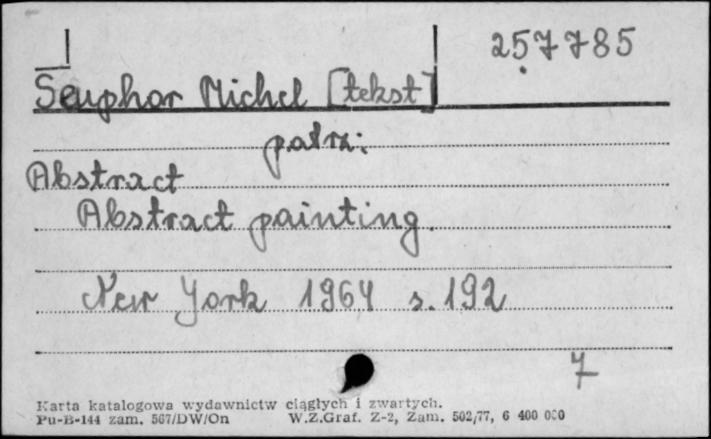 257785
Seuphor Michel [tekst]
patrz:
Abstract
Abstract painting.
New York 1964 s. 192
7
Karta katalogowa wydawnictw ciągłych i zwartych.
Pu-B-144 zam. 567/DW/On W.Z.Graf. Z-2, Zam. 502/77, 6 400 000